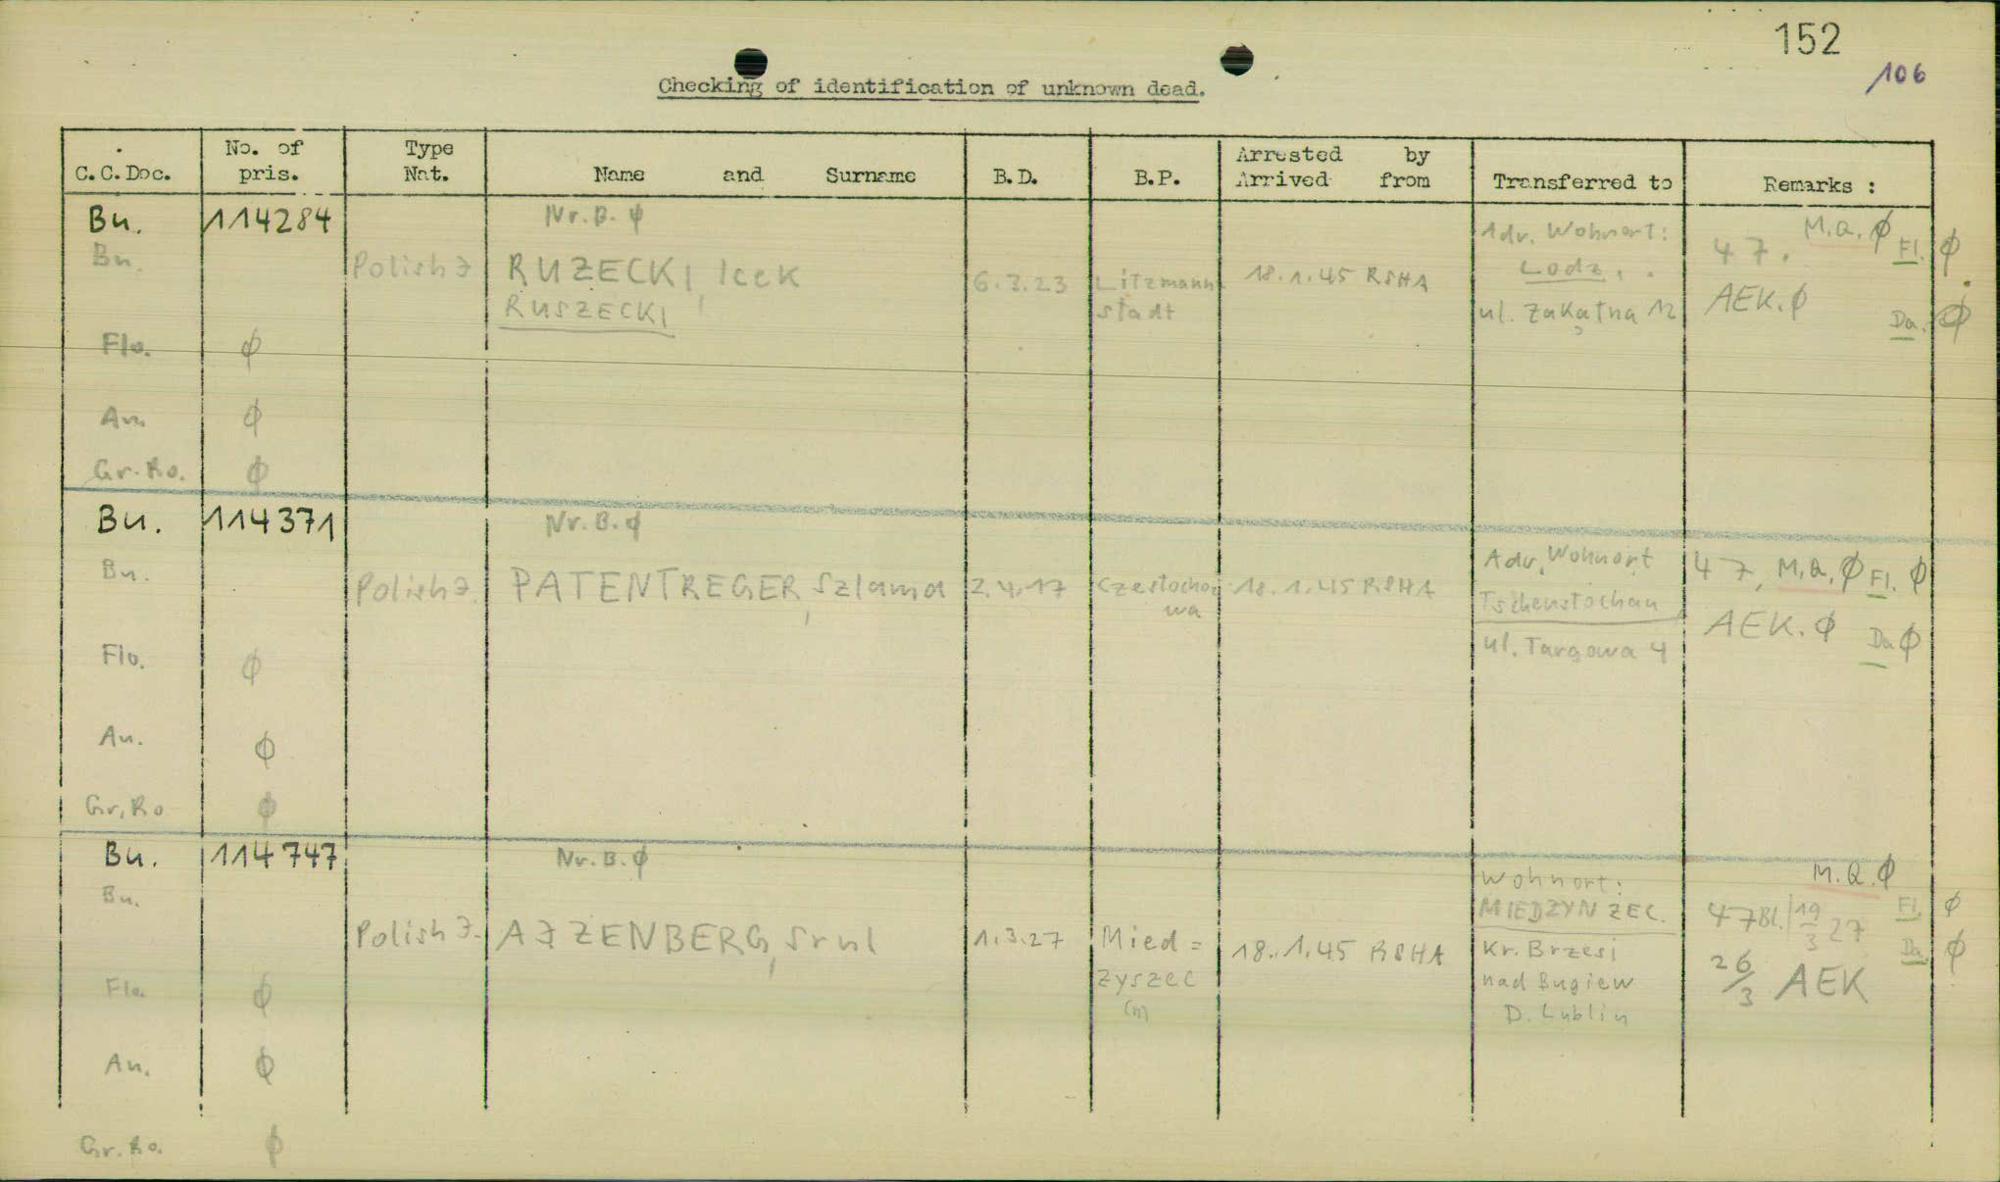 152
106
Checking of identification of unknown dead.
C.C.Doc. No. of pris. Type Nat. Name and Surname B.D. B.P. Arrested by Arrived from Transferred to Remarks :
Bu. 114284 Nr. B. ∅ Adr. Wohnort: 47. M.Q. ∅ Fl. ∅
Bu. Polish J RUZECKI, Icek 6.3.23 Litzmann 18.1.45 RSHA Lodz,
RUSZECKI stadt ul. Zakątna 12 AEK. ∅ Da. ∅
Flo. ∅
Au. ∅
Gr. Ro. ∅
Bu. 114371 Nr. B. ∅ Adr. Wohnort 47, M.Q. ∅ Fl. ∅
Bu. Polish J. PATENTREGER, Szlama 2.4.17 Czestocho 18.1.45 RSHA Tschenstochau
wa ul. Targowa 4 AEK. ∅ Da ∅
Flo. ∅
Au. ∅
Gr. Ro ∅
Bu. 114747 Nr. B. ∅ Wohnort: M.Q. ∅
Bu. MIEDZYNZEC. 47 Bl. 19/3 27 Fl. ∅
Polish J. AJZENBERG, Srul 1.3.27 Mied= 18.1.45 RSHA Kr. Brzesi Da ∅
zyszec nad Bugiew 26/3 AEK
Flo. ∅ D. Lublin
Au. ∅
Gr. Ro. ∅